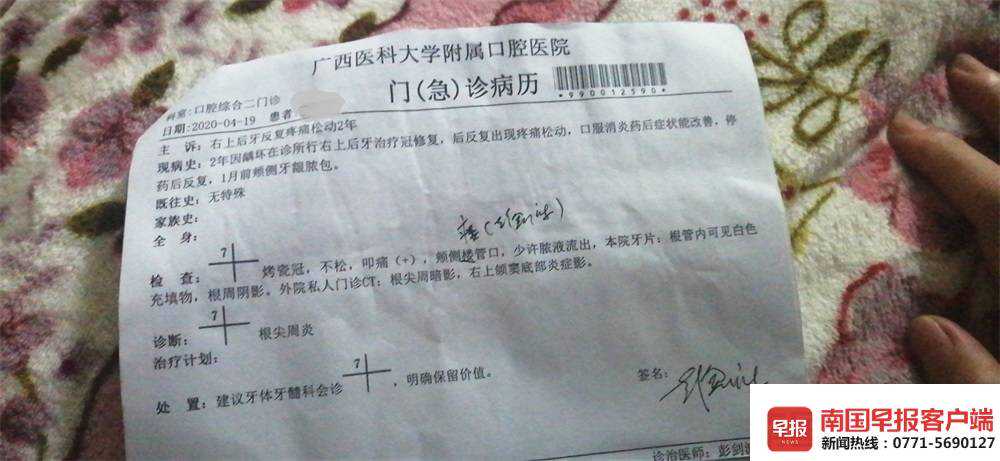 广西医科大学附属口腔医院
门(急)诊病历
*990012590*
科室:口腔综合二门诊
日期:2020-04-19 患者:
主 诉:右上后牙反复疼痛松动2年
现病史:2年因龋坏在诊所行右上后牙治疗冠修复,后反复出现疼痛松动,口服消炎药后症状能改善,停
药后反复,1月前颊侧牙龈脓包。
既往史:无特殊
家族史:
全 身:
检 查: 7 烤瓷冠,不松,叩痛(+),颊侧楼管口,少许脓液流出,本院牙片:根管内可见白色
充填物,根周阴影。外院私人门诊CT:根尖周暗影,右上颌窦底部炎症影。
诊断: 7 根尖周炎
治疗计划:
处 置:建议牙体牙髓科会诊 7 ,明确保留价值。
签名:
诊治医师:彭剑
早报
NEWS
南国早报客户端
新闻热线:0771-5690127